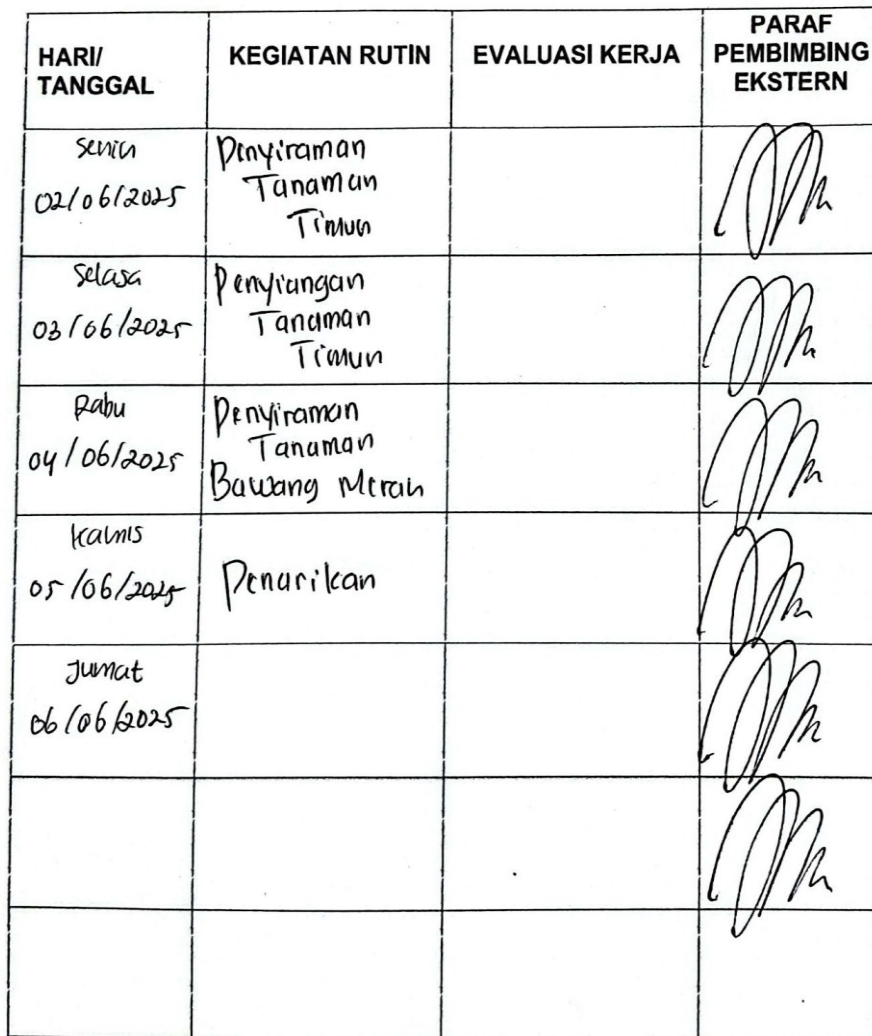 HARI/
TANGGAL
KEGIATAN RUTIN
EVALUASI KERJA
PARAF
PEMBIMBING
EKSTERN
Senin
02/06/2025
Penyiraman
Tanaman
Timun
Selasa
03/06/2025
Penyiangan
Tanaman
Timun
Rabu
04/06/2025
Penyiraman
Tanaman
Bawang Merah
Kamis
05/06/2025
Penarikan
Jumat
06/06/2025